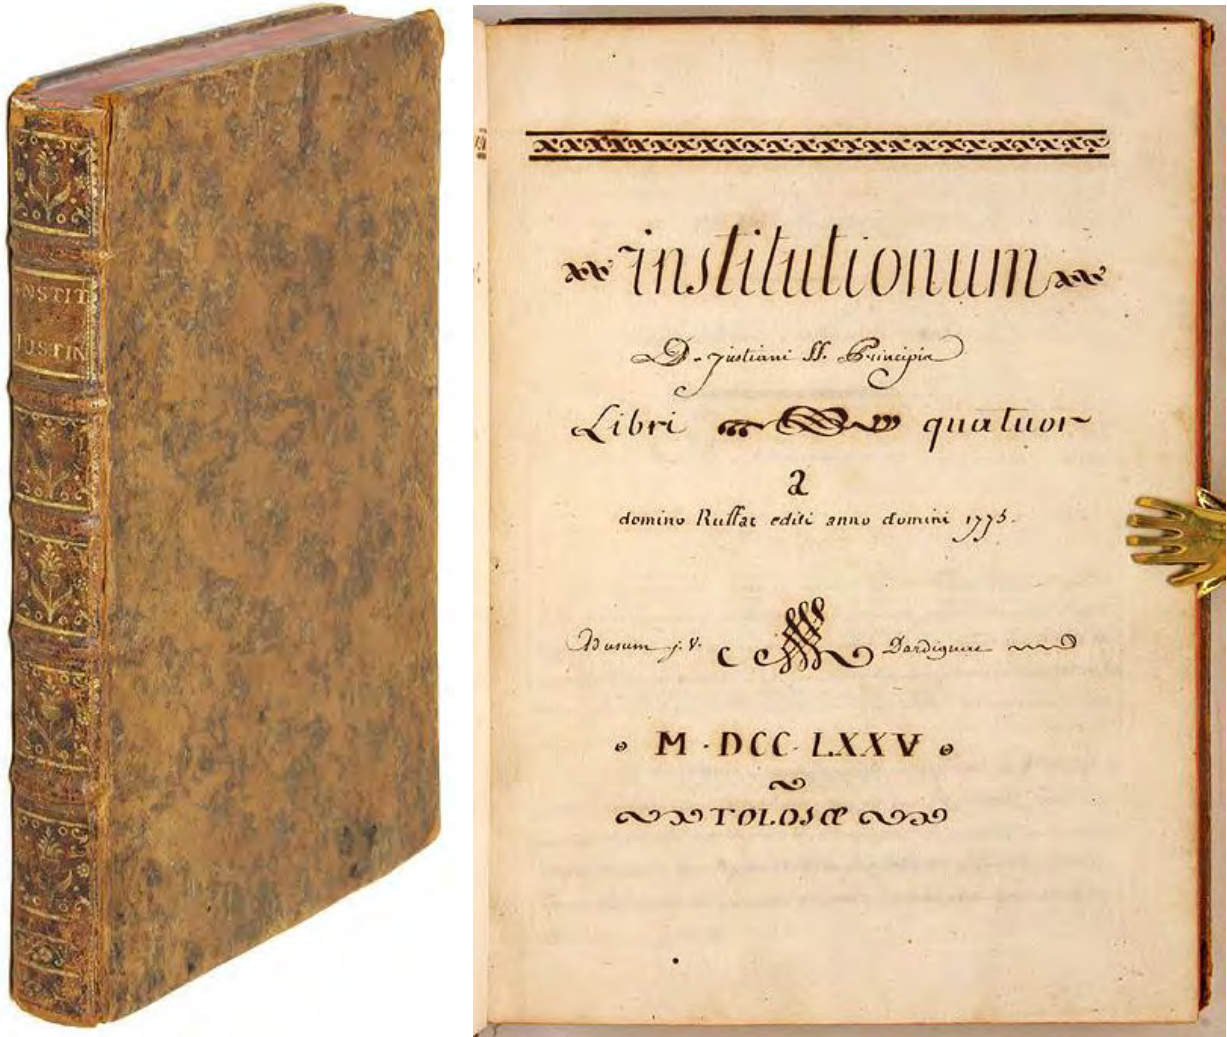 INSTIT
JUSTIN
institutionum
D. Justiani SS. Principia
Libri quatuor
a
domino Ruffat editi anno domini 1775.
j. V. Dardignac
M · DCC · LXXV
TOLOSÆ